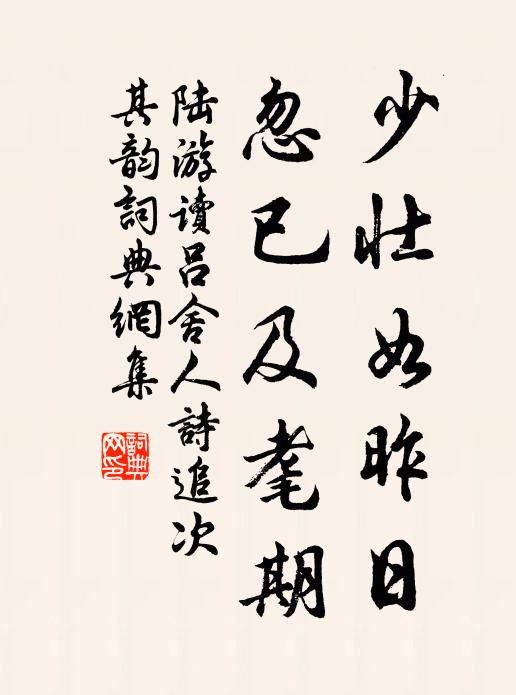 少壮如昨日
忽已及耄期
陆游读吕舍人詩追次
其韵詞典網集
詞典
网印